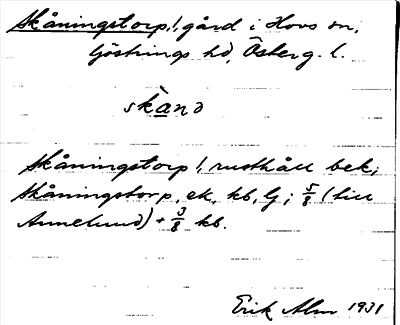 Skåningstorp, l, gård i Hovs sn,
Göstrings hd, Österg. l.
skànd
Skåningstorp l, rusthåll bek;
Skåningstorp, ek, kb, G; 5/8 (till
Annelund) + 3/8 kb.
Erik Alm 1931